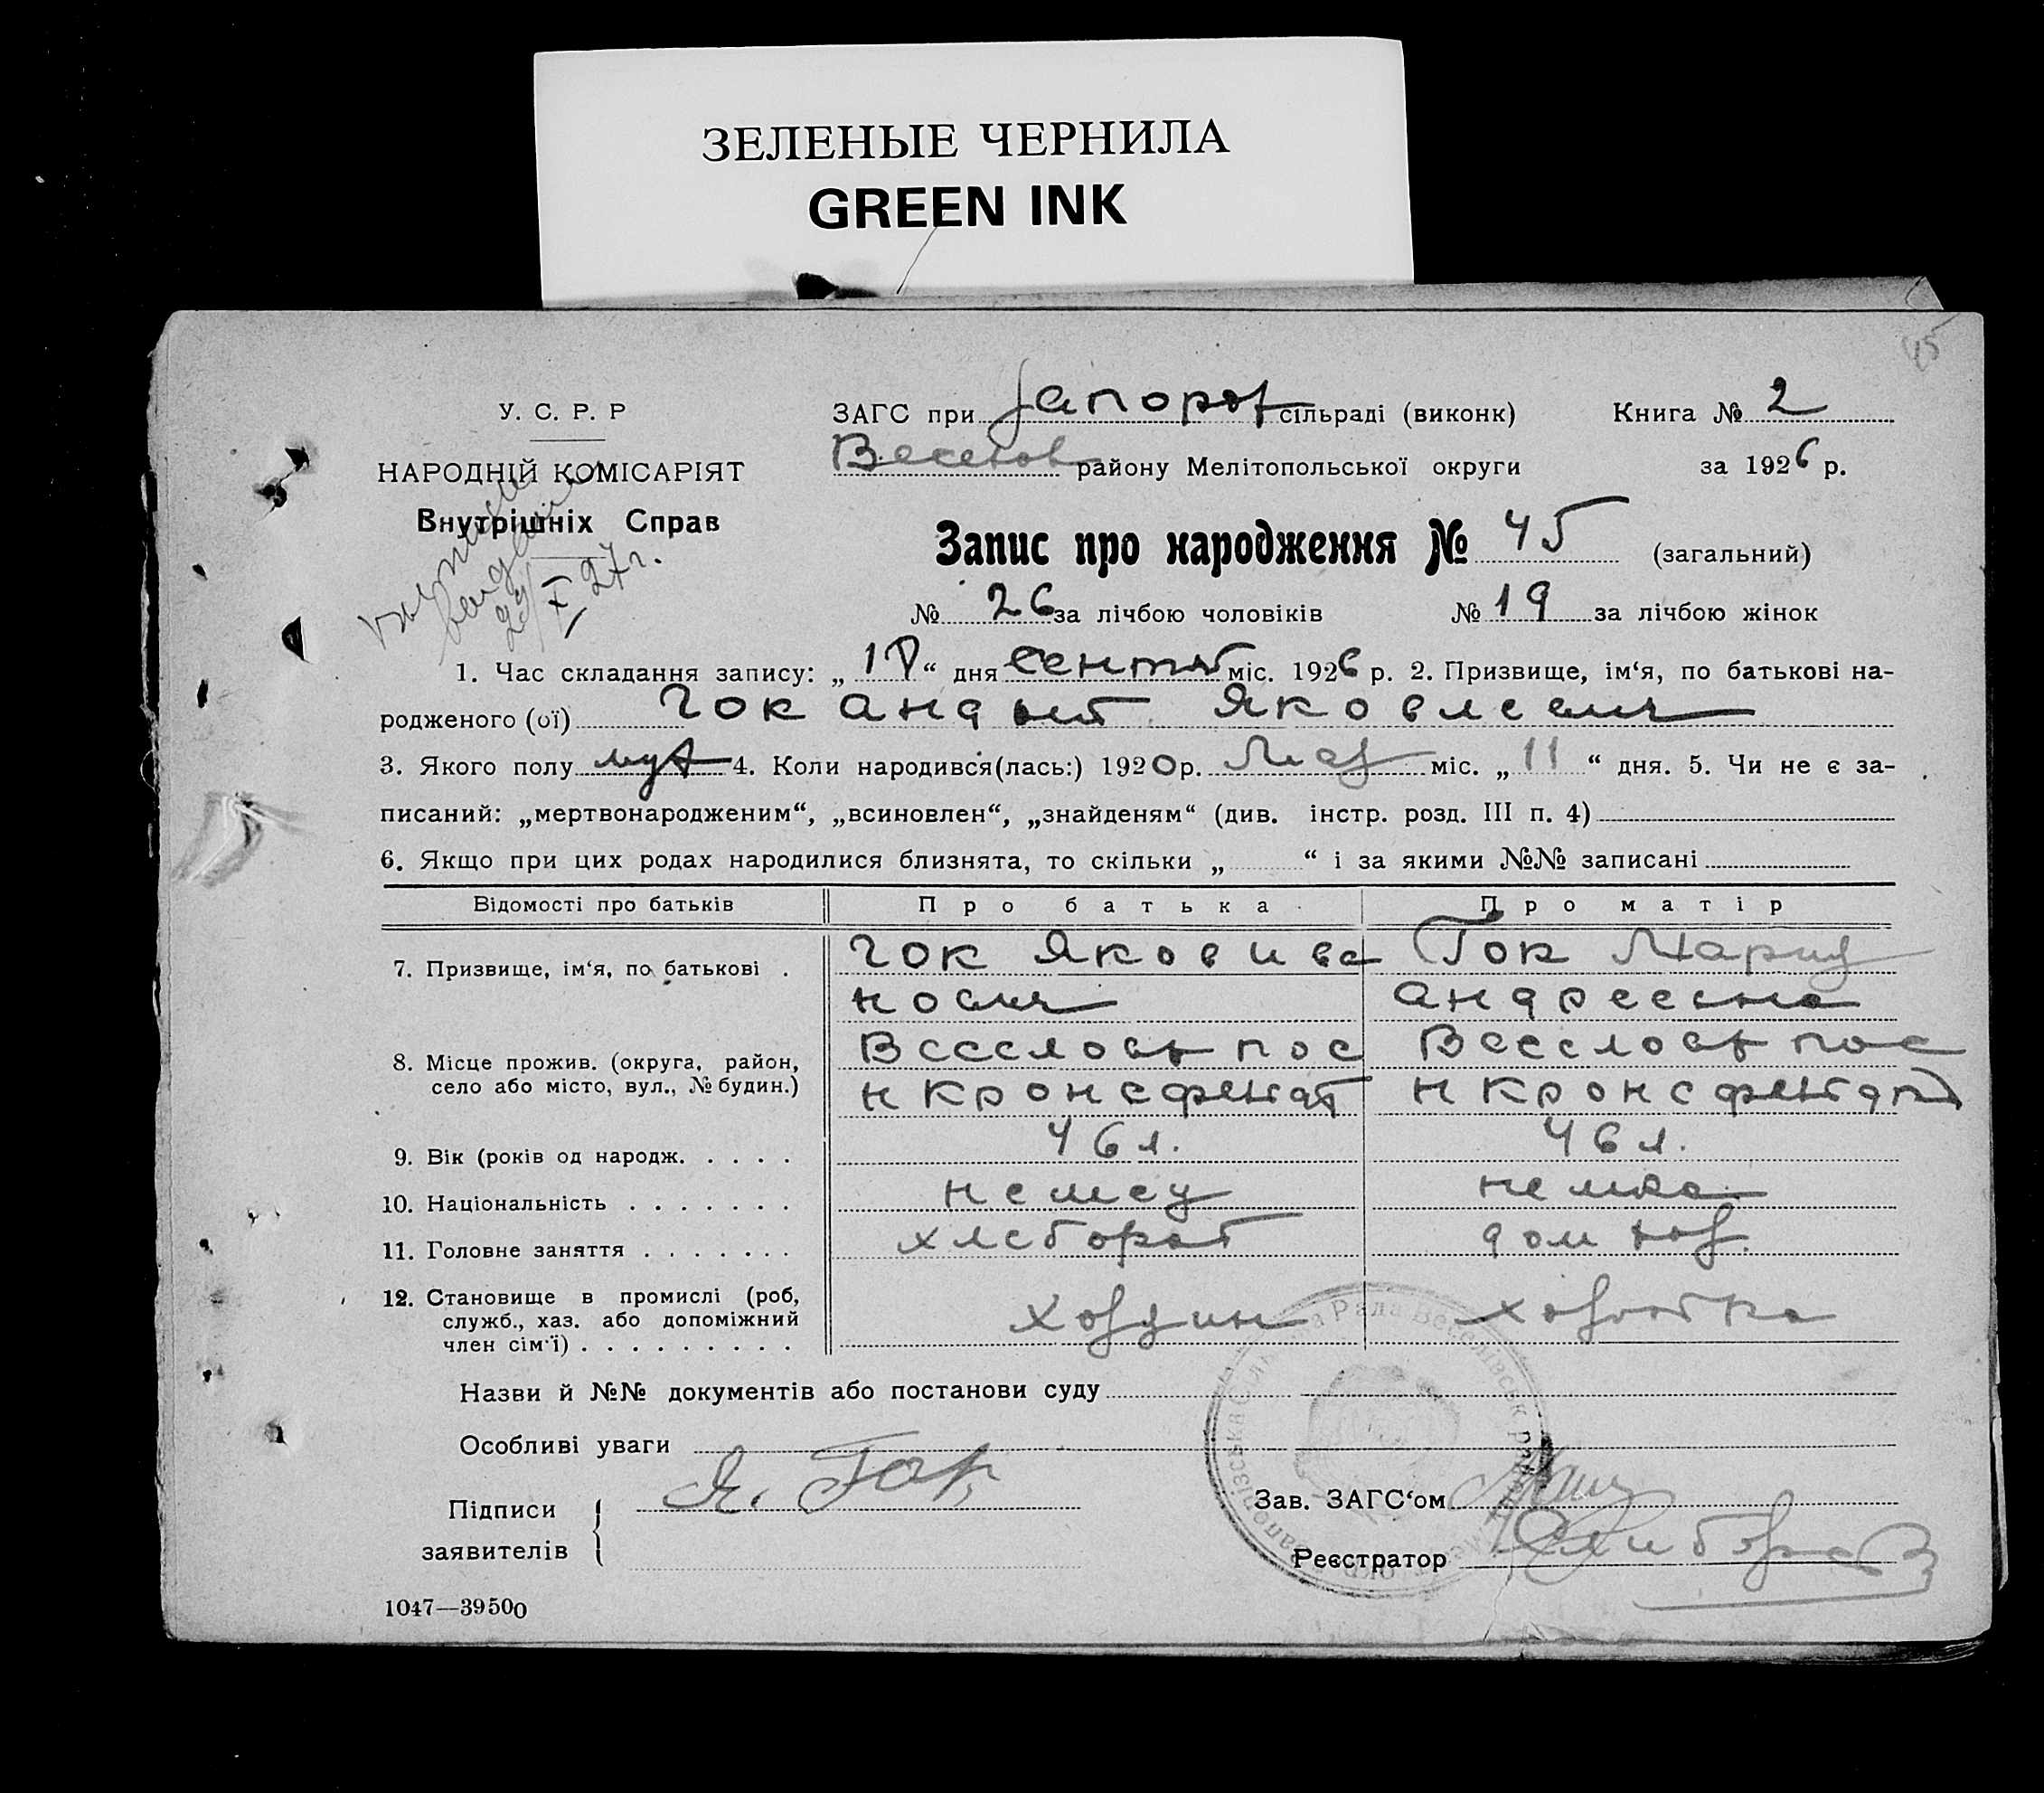 ЗЕЛЕНЫЕ ЧЕРНИЛА
GREEN INK
45
У. С. Р. Р
НАРОДНІЙ КОМІСАРІЯТ
Внутрішніх Справ
27 г.
ЗАГС при Запорож сільраді (виконк) Книга № 2
Веселов району Мелітопольської округи за 1926 р.
Запис про народження № 45 (загальний)
№ 26 за лічбою чоловіків № 19 за лічбою жінок
1. Час складання запису: „ “ дня сентяб міс. 1926 р. 2. Призвище, ім‘я, по батькові на-
родженого (ої) Гок Яковлевич
3. Якого полу муж 4. Коли народився(лась:) 1920 р. міс. „ 11 “ дня. 5. Чи не є за-
писаний: „мертвонародженим“, „всиновлен“, „знайденям“ (див. інстр. розд. III п. 4)
6. Якщо при цих родах народилися близнята, то скільки „ “ і за якими №№ записані
Відомості про батьків Про батька Про матір
7. Призвище, ім‘я, по батькові . Гок Яков Ива Гок Мария
нович андреевна
8. Місце прожив. (округа, район, Веселовск пос Веселовск пос
село або місто, вул., № будин.) н Кронсфельдт н Кронсфельдт
9. Вік (років од народж. . . . . 46 л. 46 л.
10. Національність . . . . . . . немец немка
11. Головне заняття . . . . . . . хлебороб дом хоз.
12. Становище в промислі (роб,
служб., хаз. або допоміжний хозяин хозяйка
член сім‘ї) . . . . . . . . .
Назви й №№ документів або постанови суду
Особливі уваги
Підписи Я. Гок
заявителів
Зав. ЗАГС‘ом
Реєстратор
1047—39500